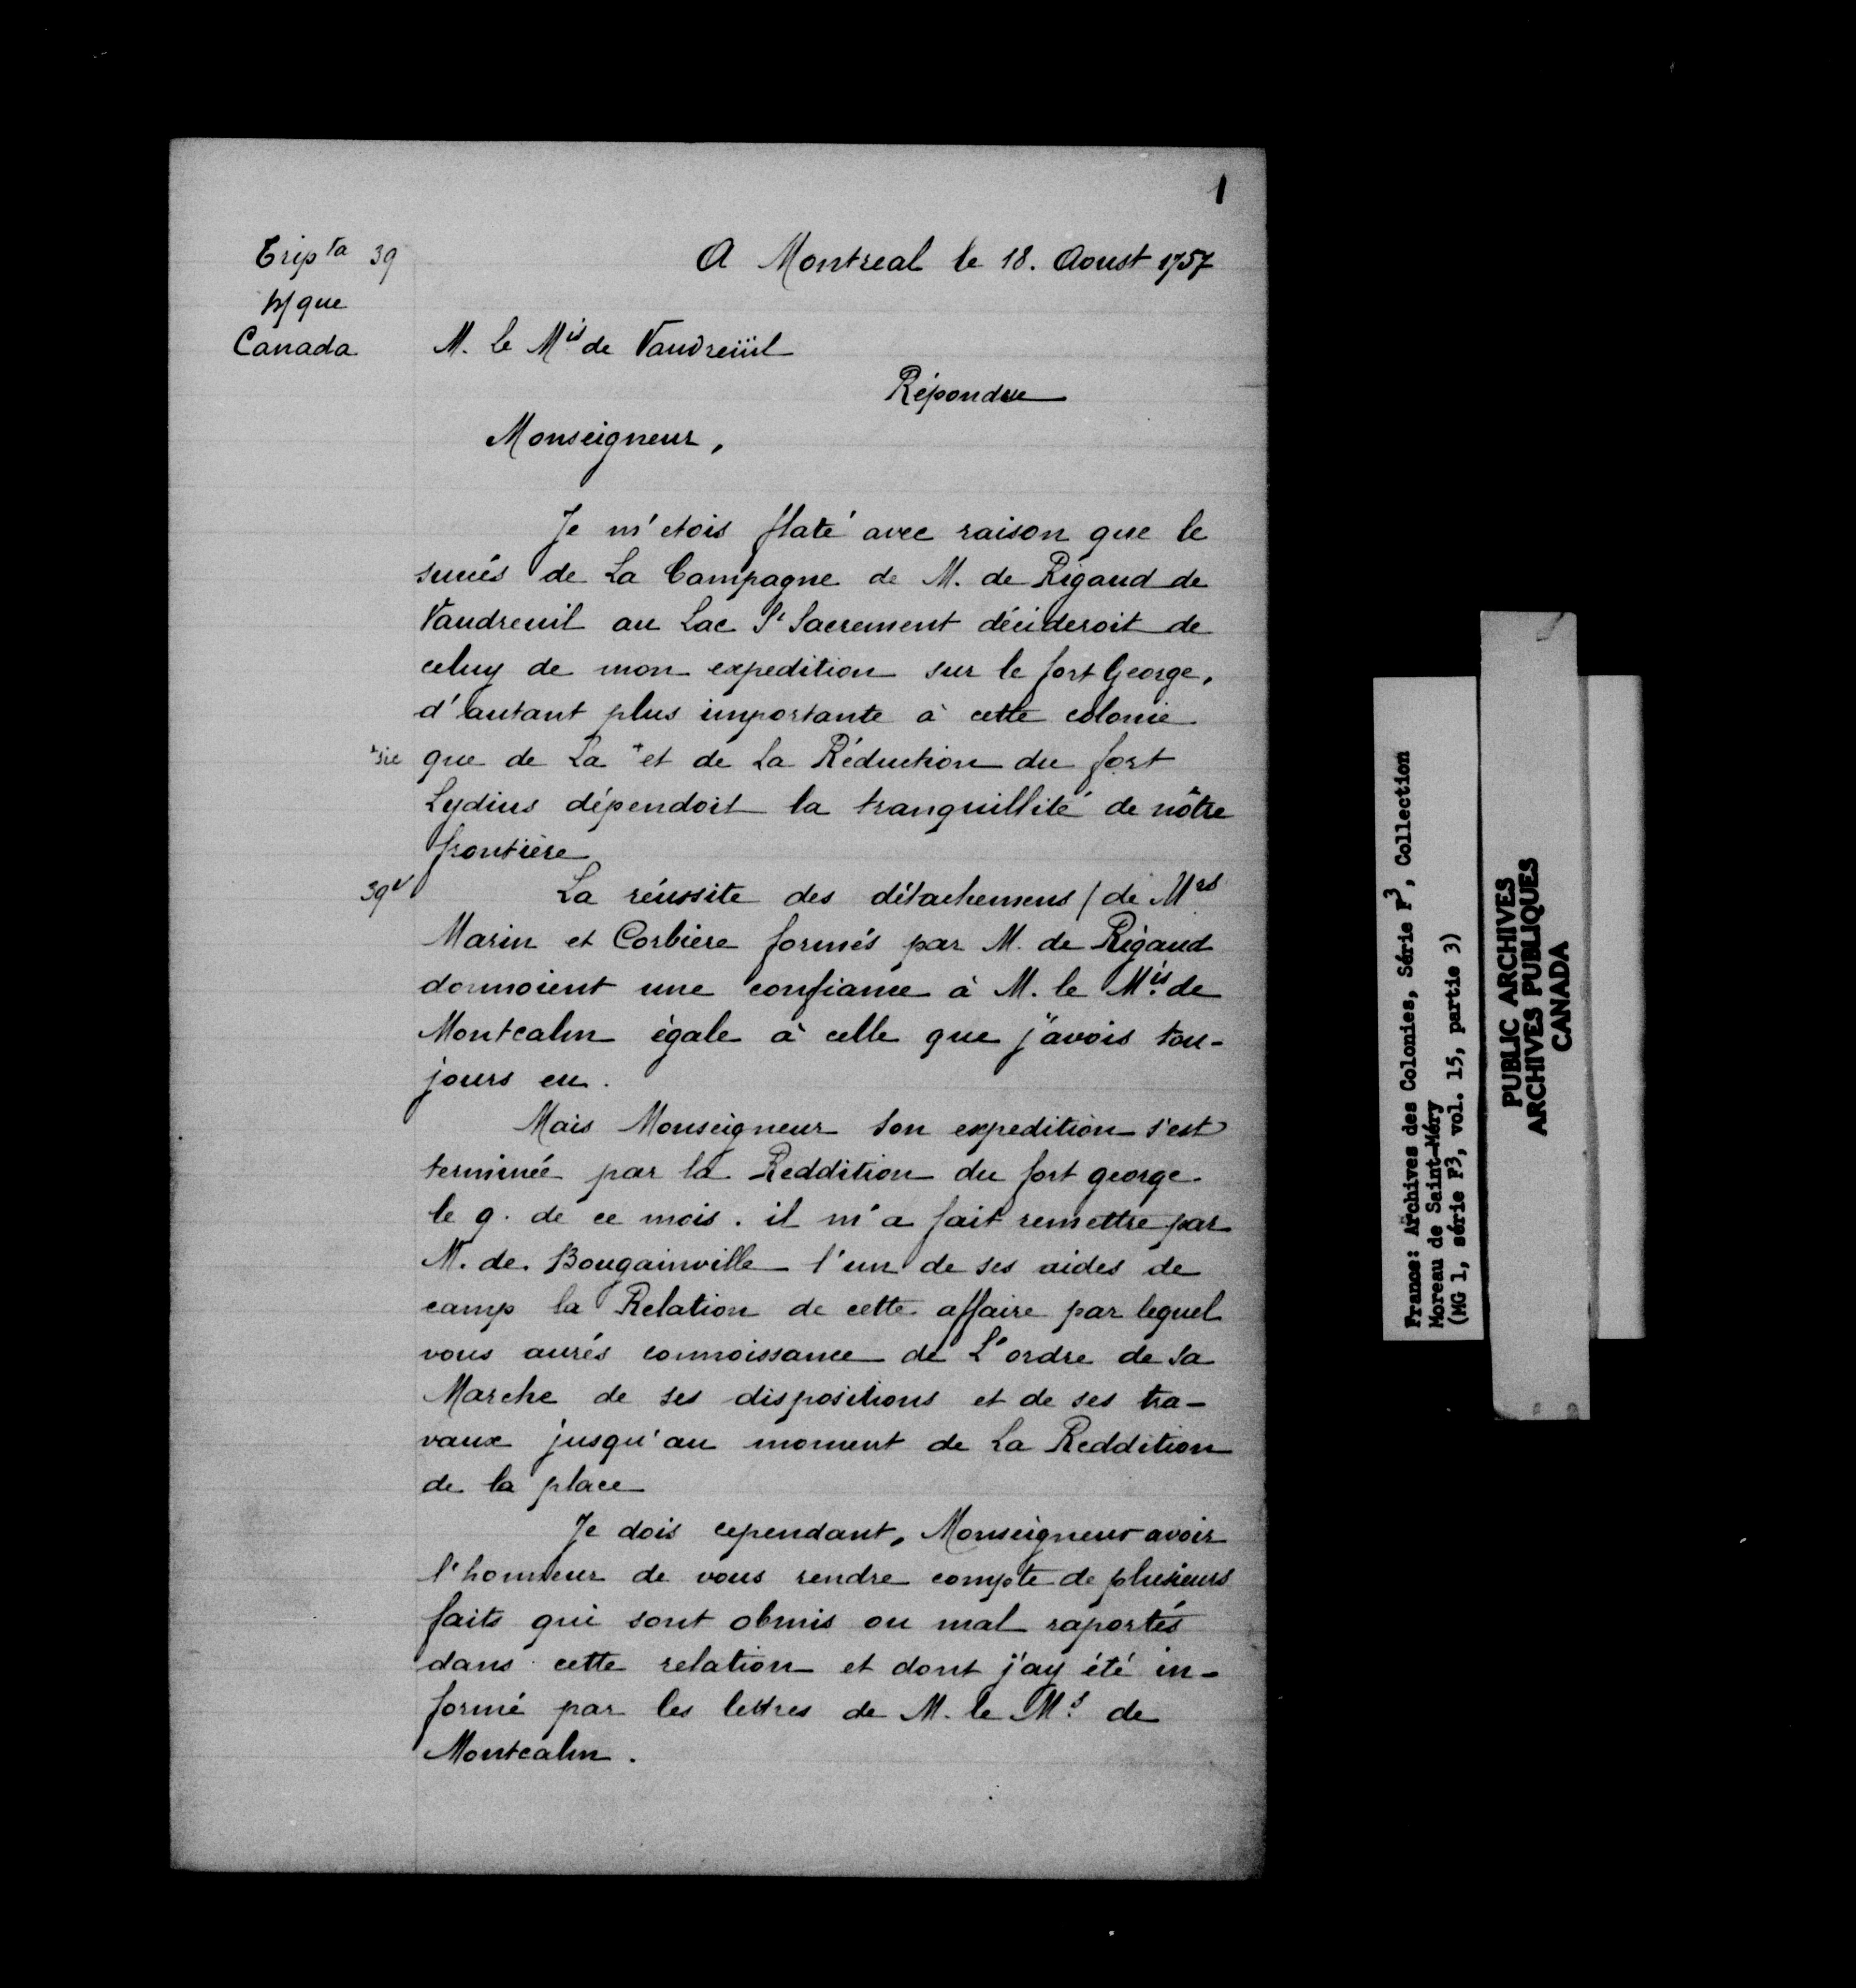 1
Tripta 39
A Montreal le 18. Aoust 1757
que
Canada
M. le Mis de Vaudreüil
Répondue
Monseigneur,
Je m'etois flaté avec raison que le
succés de La Campagne de M. de Rigaud de
Vaudreuil au Lac St Sacrement décideroit de
celuy de mon expedition sur le fort George,
d'autant plus importante à cette colonie
+sic que de La + et de La Réduction du fort
Lydius dépendoit la tranquillité de nôtre
frontière
39v La réussite des détachemens / de Mrs
Marin et Corbiere formés par M. de Rigaud
donnoient une confiance à M. le Mis de
Montcalm égale à celle que j'avois tou-
jours eu.
Mais Monseigneur son expedition s'est
terminée par la Reddition du fort george
le 9. de ce mois. il m'a fait remettre par
M. de Bougainville l'un de ses aides de
camp la Relation de cette affaire par lequel
vous aurés connoissance de L'ordre de sa
Marche de ses dispositions et de ses tra-
vaux jusqu'au moment de La Reddition
de la place
Je dois cependant, Monseigneur avoir
l'honneur de vous rendre compte de plusieurs
faits qui sont obmis ou mal raportés
dans cette relation et dont j'ay été in-
formé par les lettres de M. le Ms de
Montcalm.
France: Archives des Colonies, Série F3, Collection
Moreau de Saint-Méry
(MG 1, série F3, vol. 15, partie 3)
PUBLIC ARCHIVES
ARCHIVES PUBLIQUES
CANADA